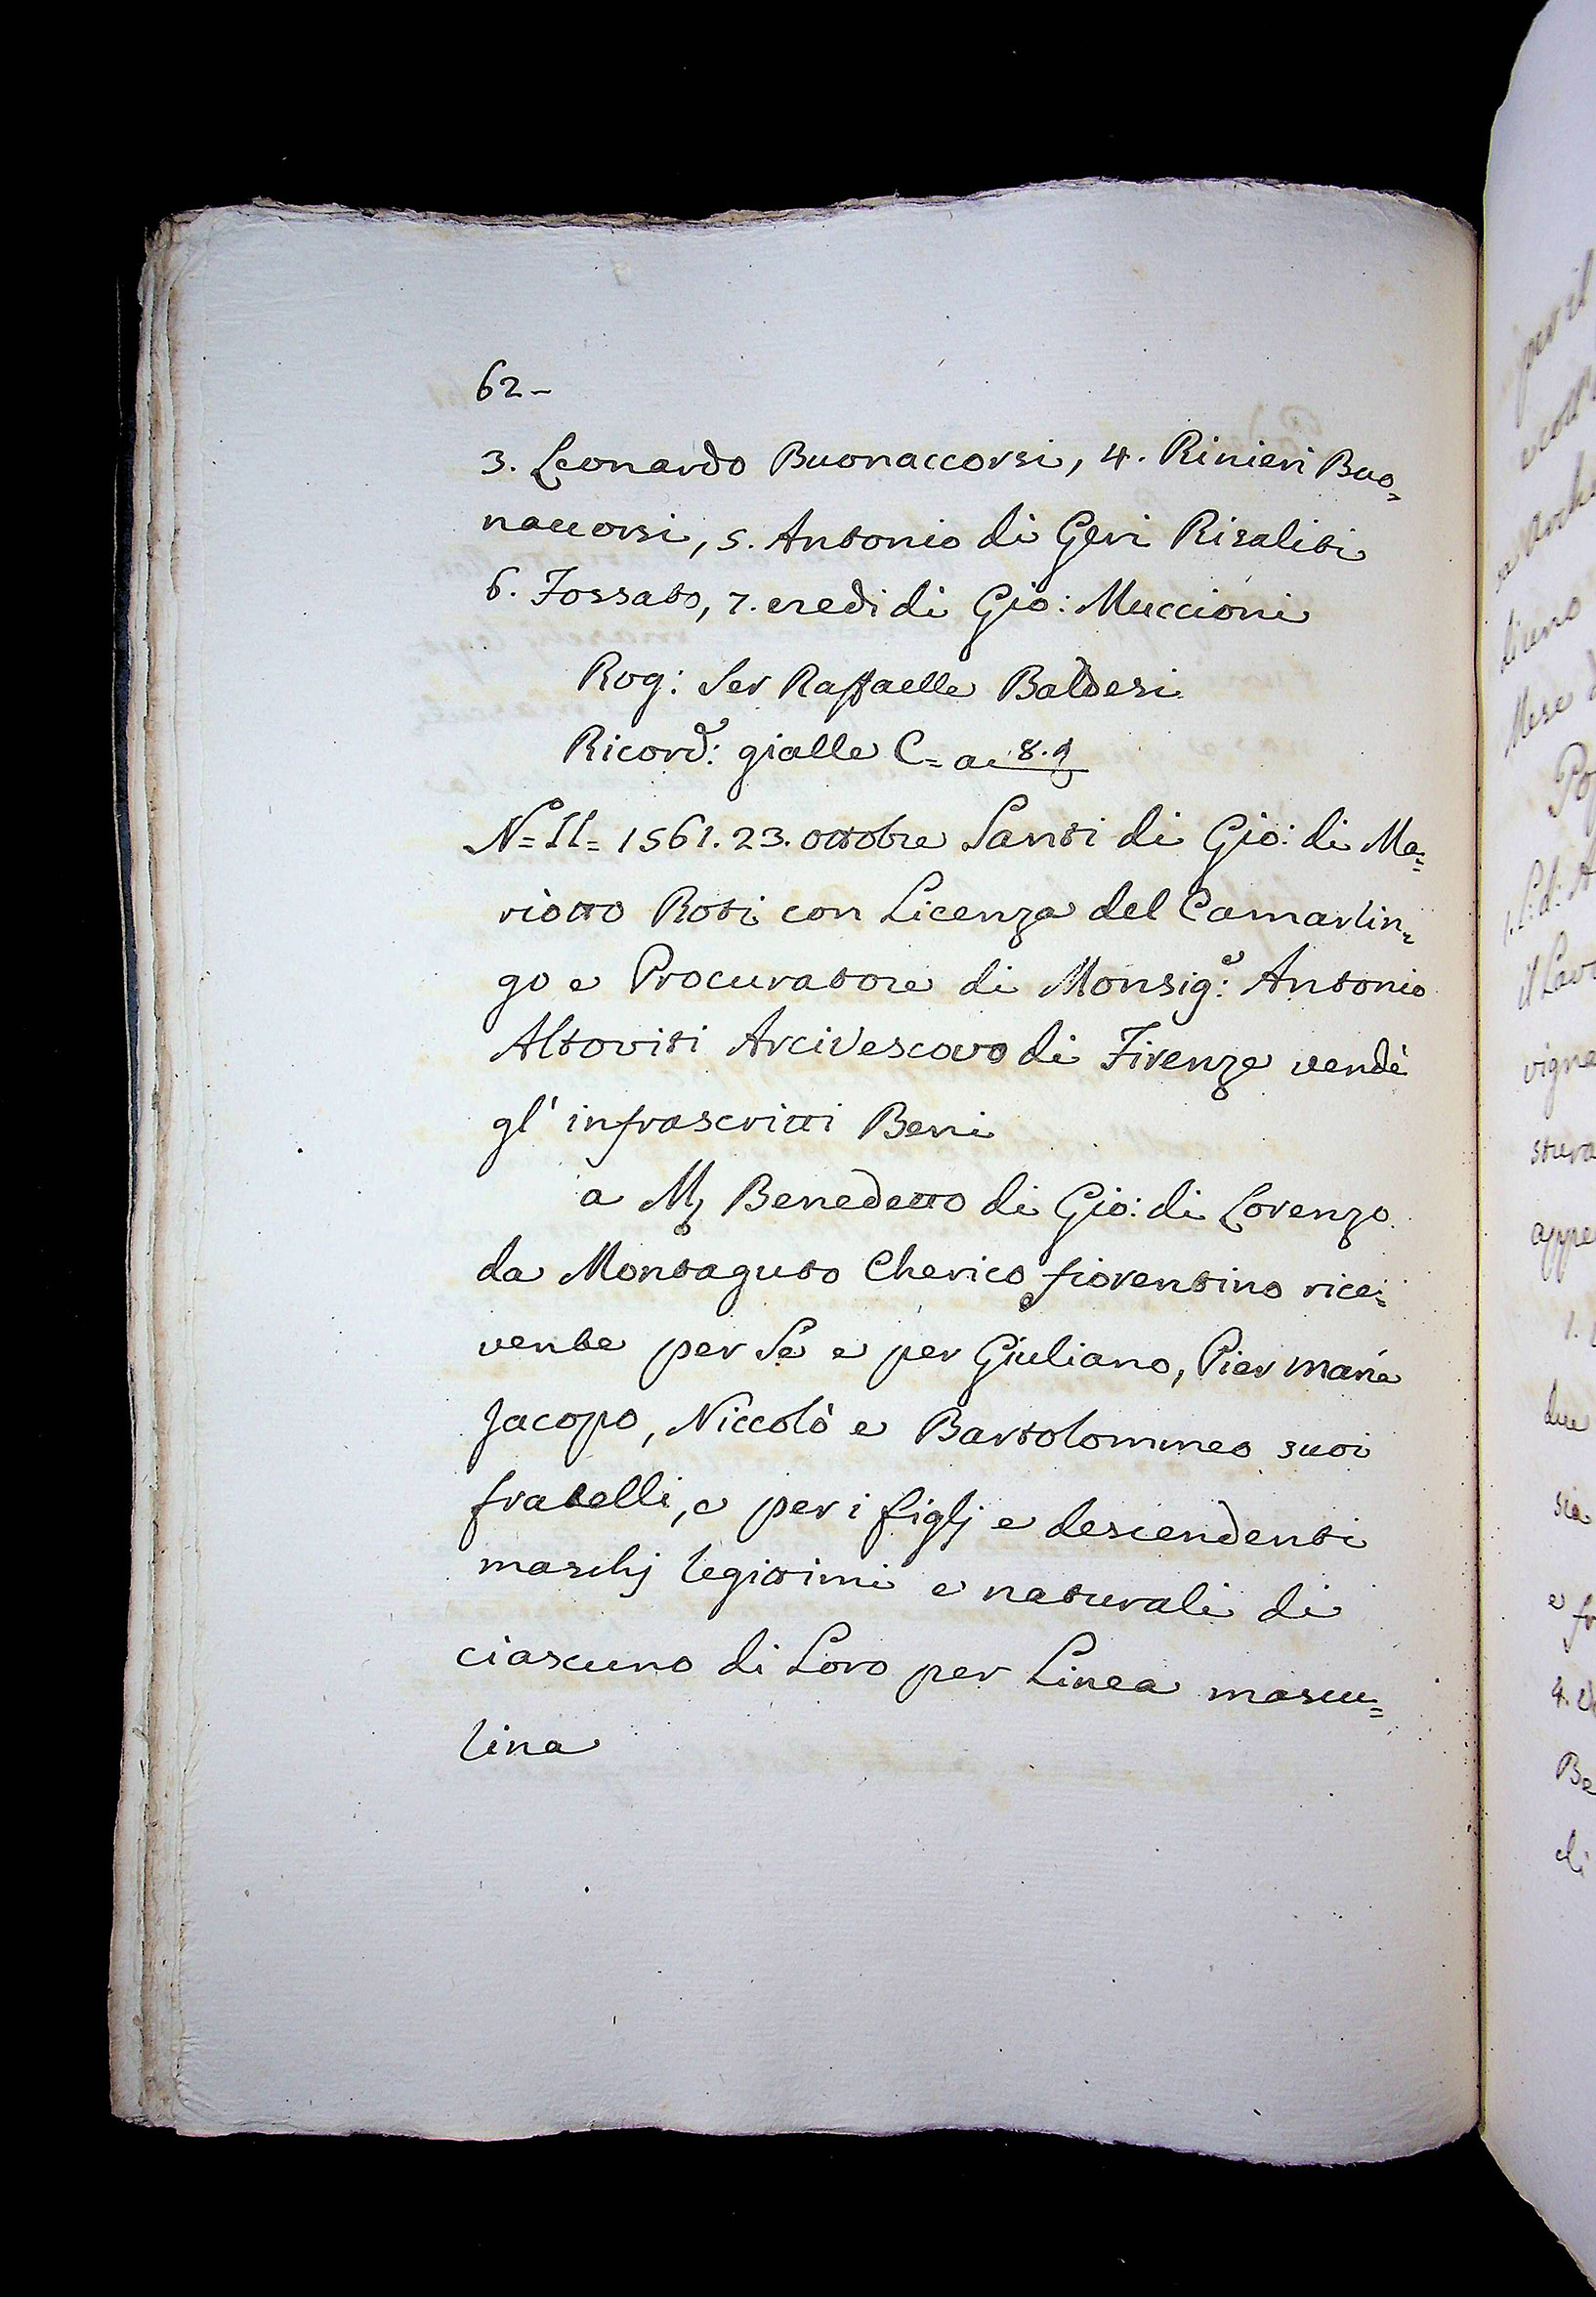 62-
3. Leonardo Buonaccorsi, 4. Rinieri Buo=
naccorsi, 5. Antonio di Geri Risaliti
6. Fossato, 7. eredi di Gio: Muccioni
Rog: Ser Raffaelle Baldesi
Ricord: gialle C= a 8.9
N=II= 1561. 23. ottobre Santi di Gio: di Ma=
riotto Roti con Licenza del Camarlin=
go e Procuratore di Monsig:e Antonio
Altoviti Arcivescovo di Firenze vendè
gl' infrascritti Beni
a M Benedetto di Gio: di Lorenzo
da Montaguto Cherico fiorentino rice=
vente per Se e per Giuliano, Pier Maria
Jacopo, Niccolò e Bartolommeo suoi
fratelli, e per i figlj e descendenti
maschj legittimi e naturali di
ciascuno di Loro per Linea mascu=
lina